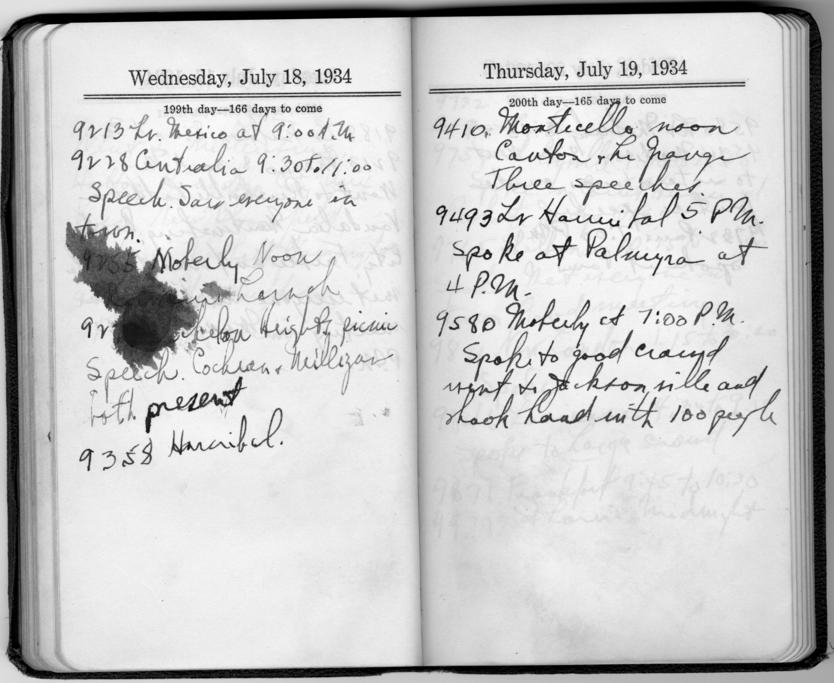 Wednesday, July 18, 1934
199th day—166 days to come
9213 Lv. Mexico at 9:00 A.M.
9228 Centralia 9:30 to 11:00
Speech. Saw everyone in
town.
9255 Moberly Noon
through
92 Heights picnic
Speech. Cochran & Milligan
both present
9358 Hannibal.
Thursday, July 19, 1934
200th day—165 days to come
9410. Monticello noon
Canton & La Grange
Three speeches.
9493 Lv Hannibal 5 P.M.
Spoke at Palmyra at
4 P.M.
9580 Moberly at 7:00 P.M.
Spoke to good crowd
went to Jacksonville and
shook hand with 100 people